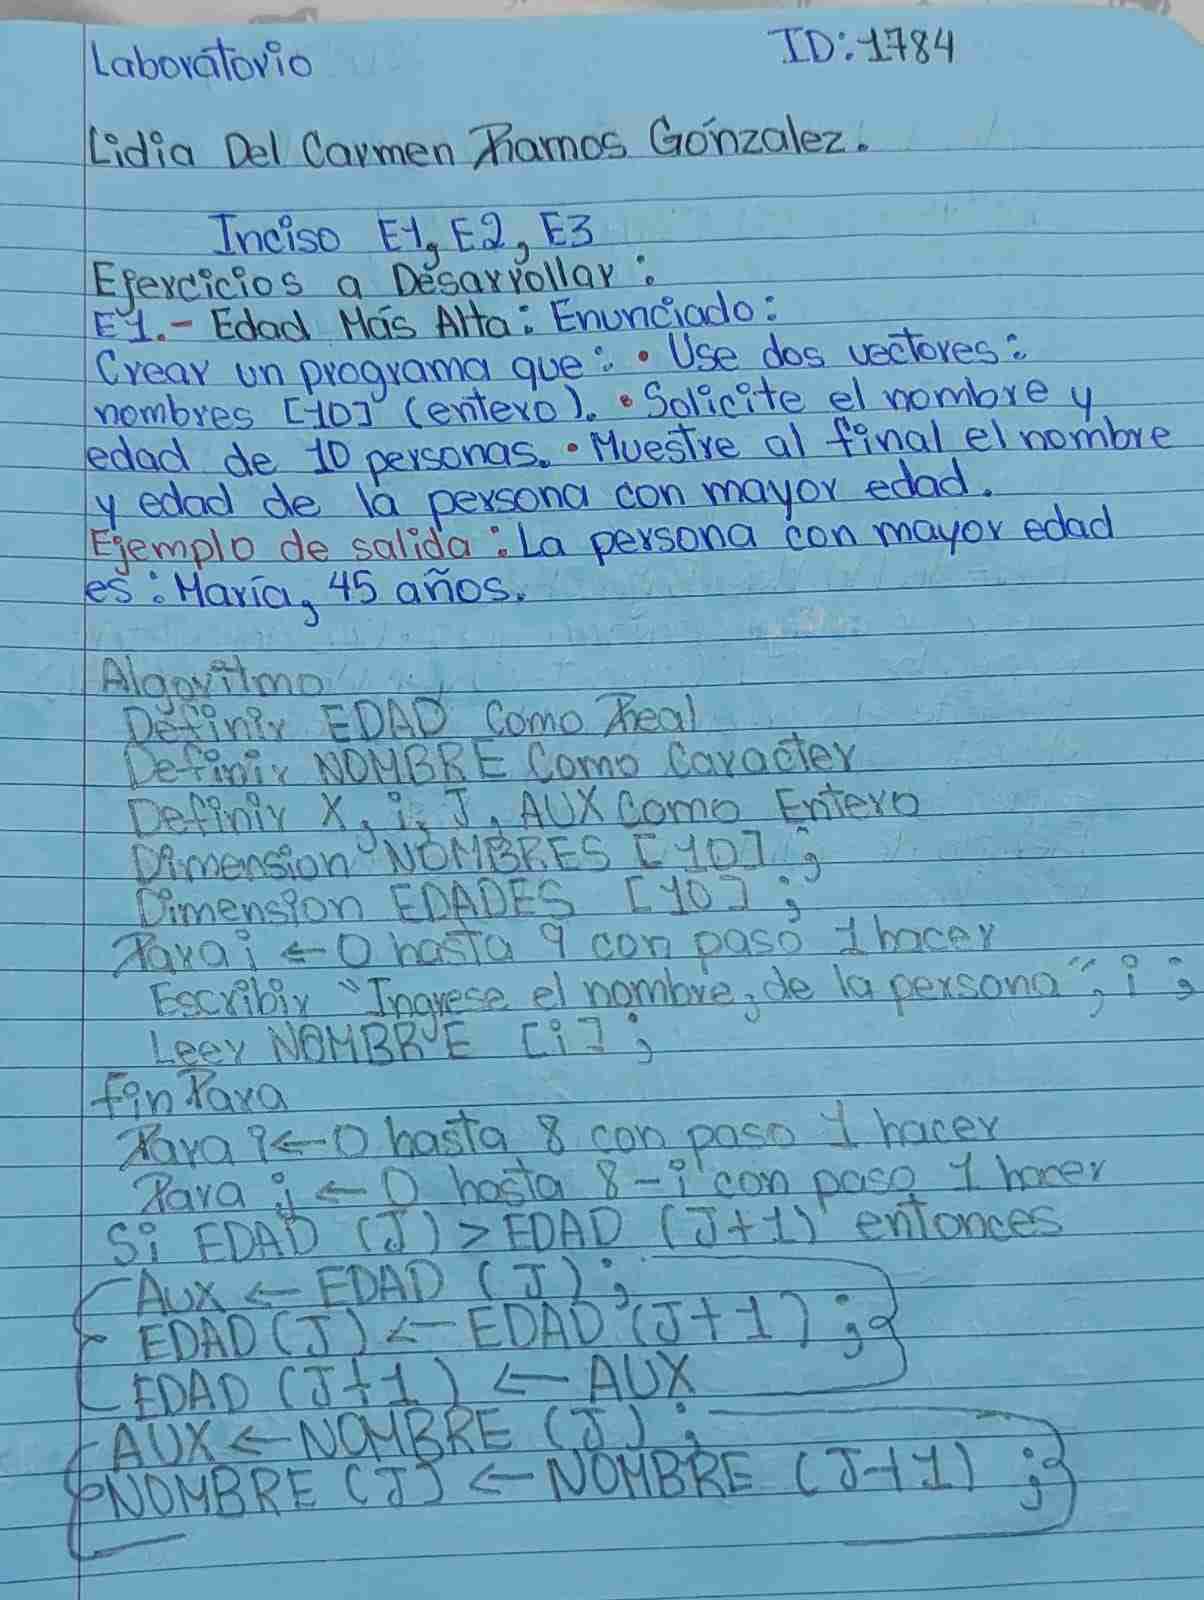 Laboratorio ID: 1784
Lidia Del Carmen Ramos Gónzalez.
Inciso E1, E2, E3
Ejercicios a Desarrollar:
E1.- Edad Más Alta: Enunciado:
Crear un programa que: • Use dos vectores:
nombres [10] (entero). • Solicite el nombre y
edad de 10 personas. • Muestre al final el nombre
y edad de la persona con mayor edad.
Ejemplo de salida: La persona con mayor edad
es: María, 45 años.
Algoritmo
Definir EDAD Como Real
Definir NOMBRE Como Caracter
Definir X, i, J, AUX Como Entero
Dimension NOMBRES [10];
Dimension EDADES [10];
Para i ← 0 hasta 9 con paso 1 hacer
Escribir "Ingrese el nombre, de la persona", i;
Leer NOMBRE [i];
Fin Para
Para i ← 0 hasta 8 con paso 1 hacer
Para j ← 0 hasta 8-i con paso 1 hacer
Si EDAD (J) > EDAD (J+1) entonces
Aux ← EDAD (J);
EDAD (J) ← EDAD (J+1);
EDAD (J+1) ← AUX
AUX ← NOMBRE (J);
NOMBRE (J) ← NOMBRE (J+1);